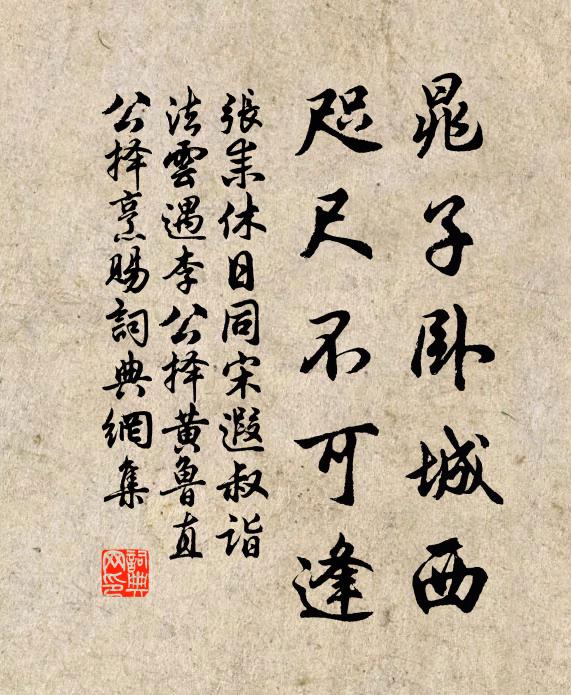 晁子卧城西
咫尺不可逢
張耒休日同宋遐叔詣
法雲遇李公择黄魯直
公择烹賜詞典網集
詞典網印